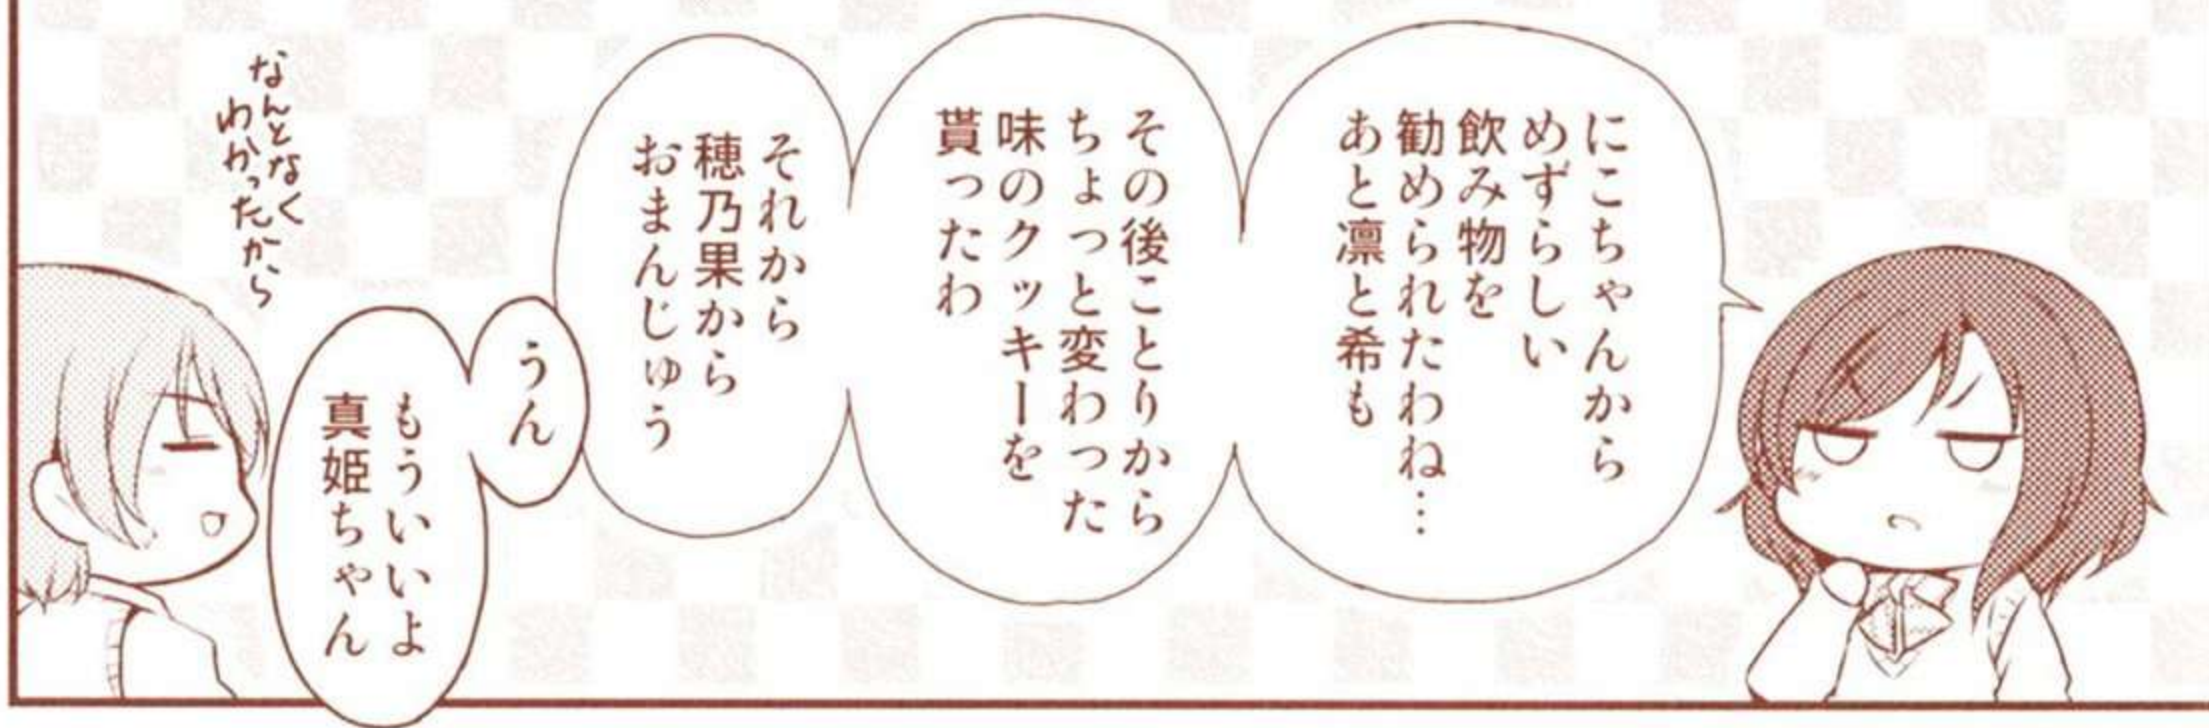 にこちゃんから
めずらしい
飲み物を
勧められたわね…
あと凛と希も
その後ことりから
ちょっと変わった
味のクッキーを
貰ったわ
それから
穂乃果から
おまんじゅう
うん
もういいよ
真姫ちゃん
なんとなく
わかったから